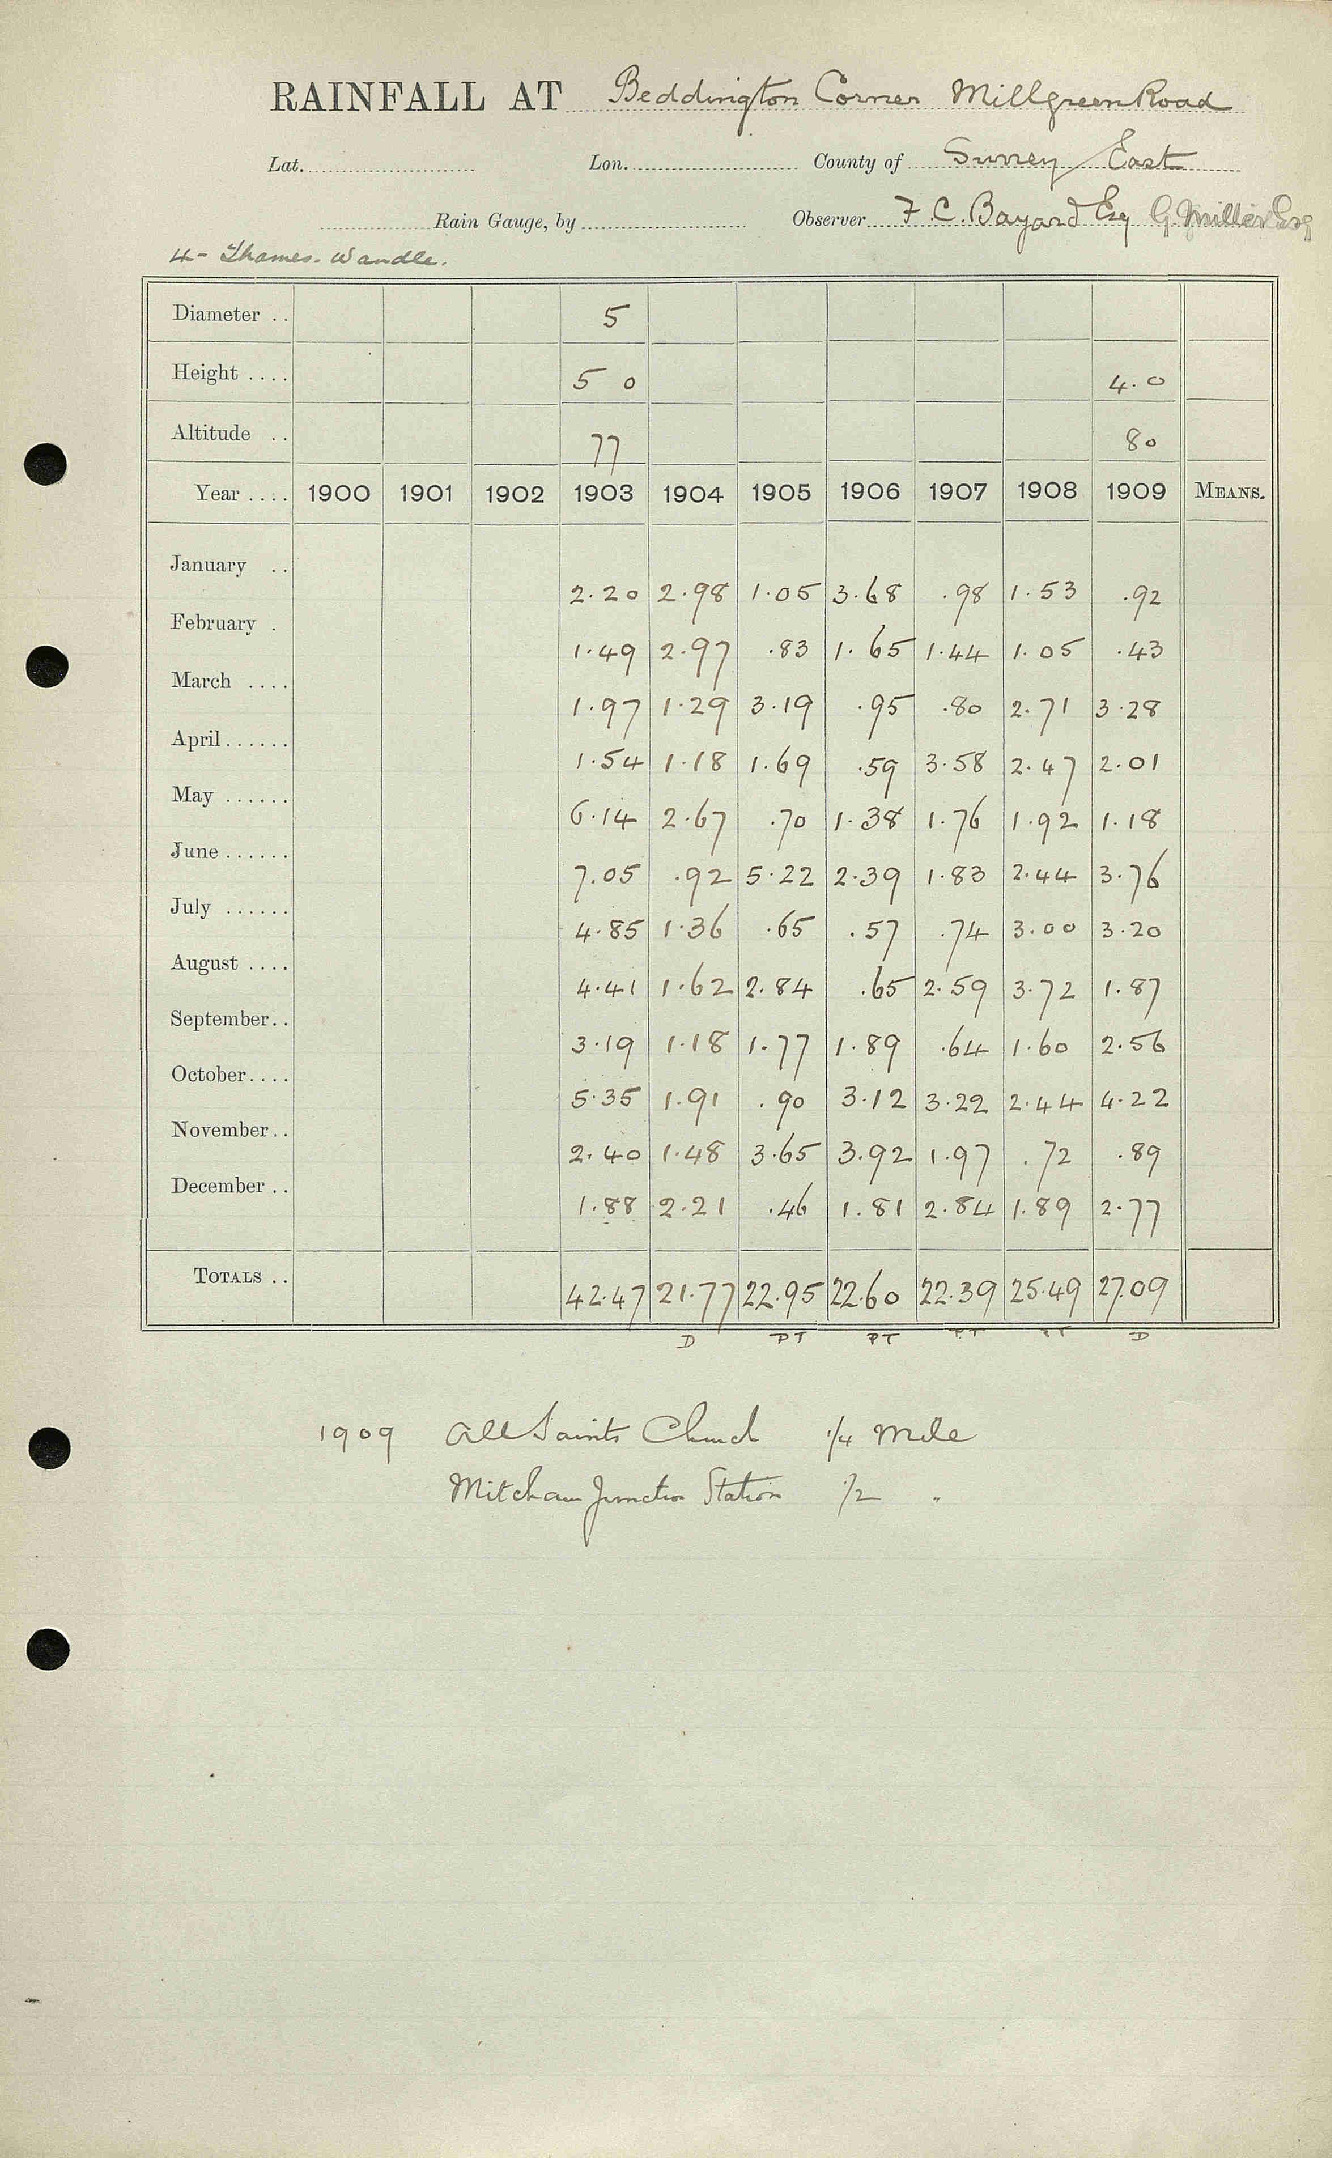 RAINFALL AT Beddington Corner Millgreen Road
Lat. Lon. County of Surrey / East
Rain Gauge, by Observer F. C. Bayard Esq G. Miller Esq
4 - Thames. Wandle.
Diameter .. 5
Height .... 5 0 4.0
Altitude .. 77 80
Year .... 1900 1901 1902 1903 1904 1905 1906 1907 1908 1909 MEANS.
January .. 2.20 2.98 1.05 3.68 .98 1.53 .92
February . 1.49 2.97 .83 1.65 1.44 1.05 .43
March .... 1.97 1.29 3.19 .95 .80 2.71 3.28
April...... 1.54 1.18 1.69 .59 3.58 2.47 2.01
May ...... 6.14 2.67 .70 1.38 1.76 1.92 1.18
June...... 7.05 .92 5.22 2.39 1.83 2.44 3.76
July ...... 4.85 1.36 .65 .57 .74 3.00 3.20
August .... 4.41 1.62 2.84 .65 2.59 3.72 1.87
September.. 3.19 1.18 1.77 1.89 .64 1.60 2.56
October.... 5.35 1.91 .90 3.12 3.22 2.44 4.22
November.. 2.40 1.48 3.65 3.92 1.97 .72 .89
December .. 1.88 2.21 .46 1.81 2.84 1.89 2.77
TOTALS .. 42.47 21.77 22.95 22.60 22.39 25.49 27.09
D PT PT PT PT D
1909 All Saints Church 1/4 mile
Mitcham Junction Station 1/2 "